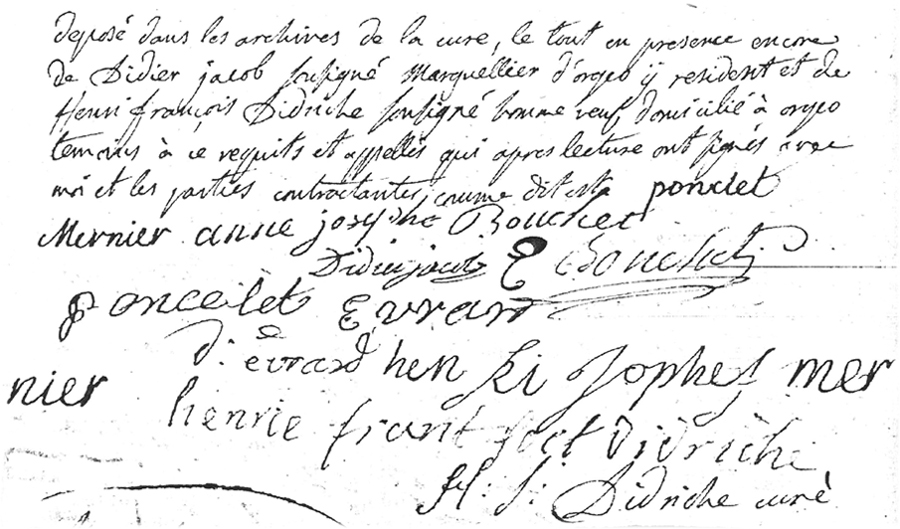 deposé dans les archives de la cure, le tout en presence encore
de Didier jacob sousigné Marguellier d'orgeo y resident et de
Henri françois Didriche sousigné homme veuf domicilié à orgeo
temoins à ce requits et appellés qui apres lecture ont signés avec
moi et les parties contractantes, comme dit est ponclet
Mernier anne josephe Boucher
Didier jacob Bouchet
poncelet Evrard
d: evrard hen Ri Jophes mer
nier henrie frant Didriche
H: J: Didriche curé